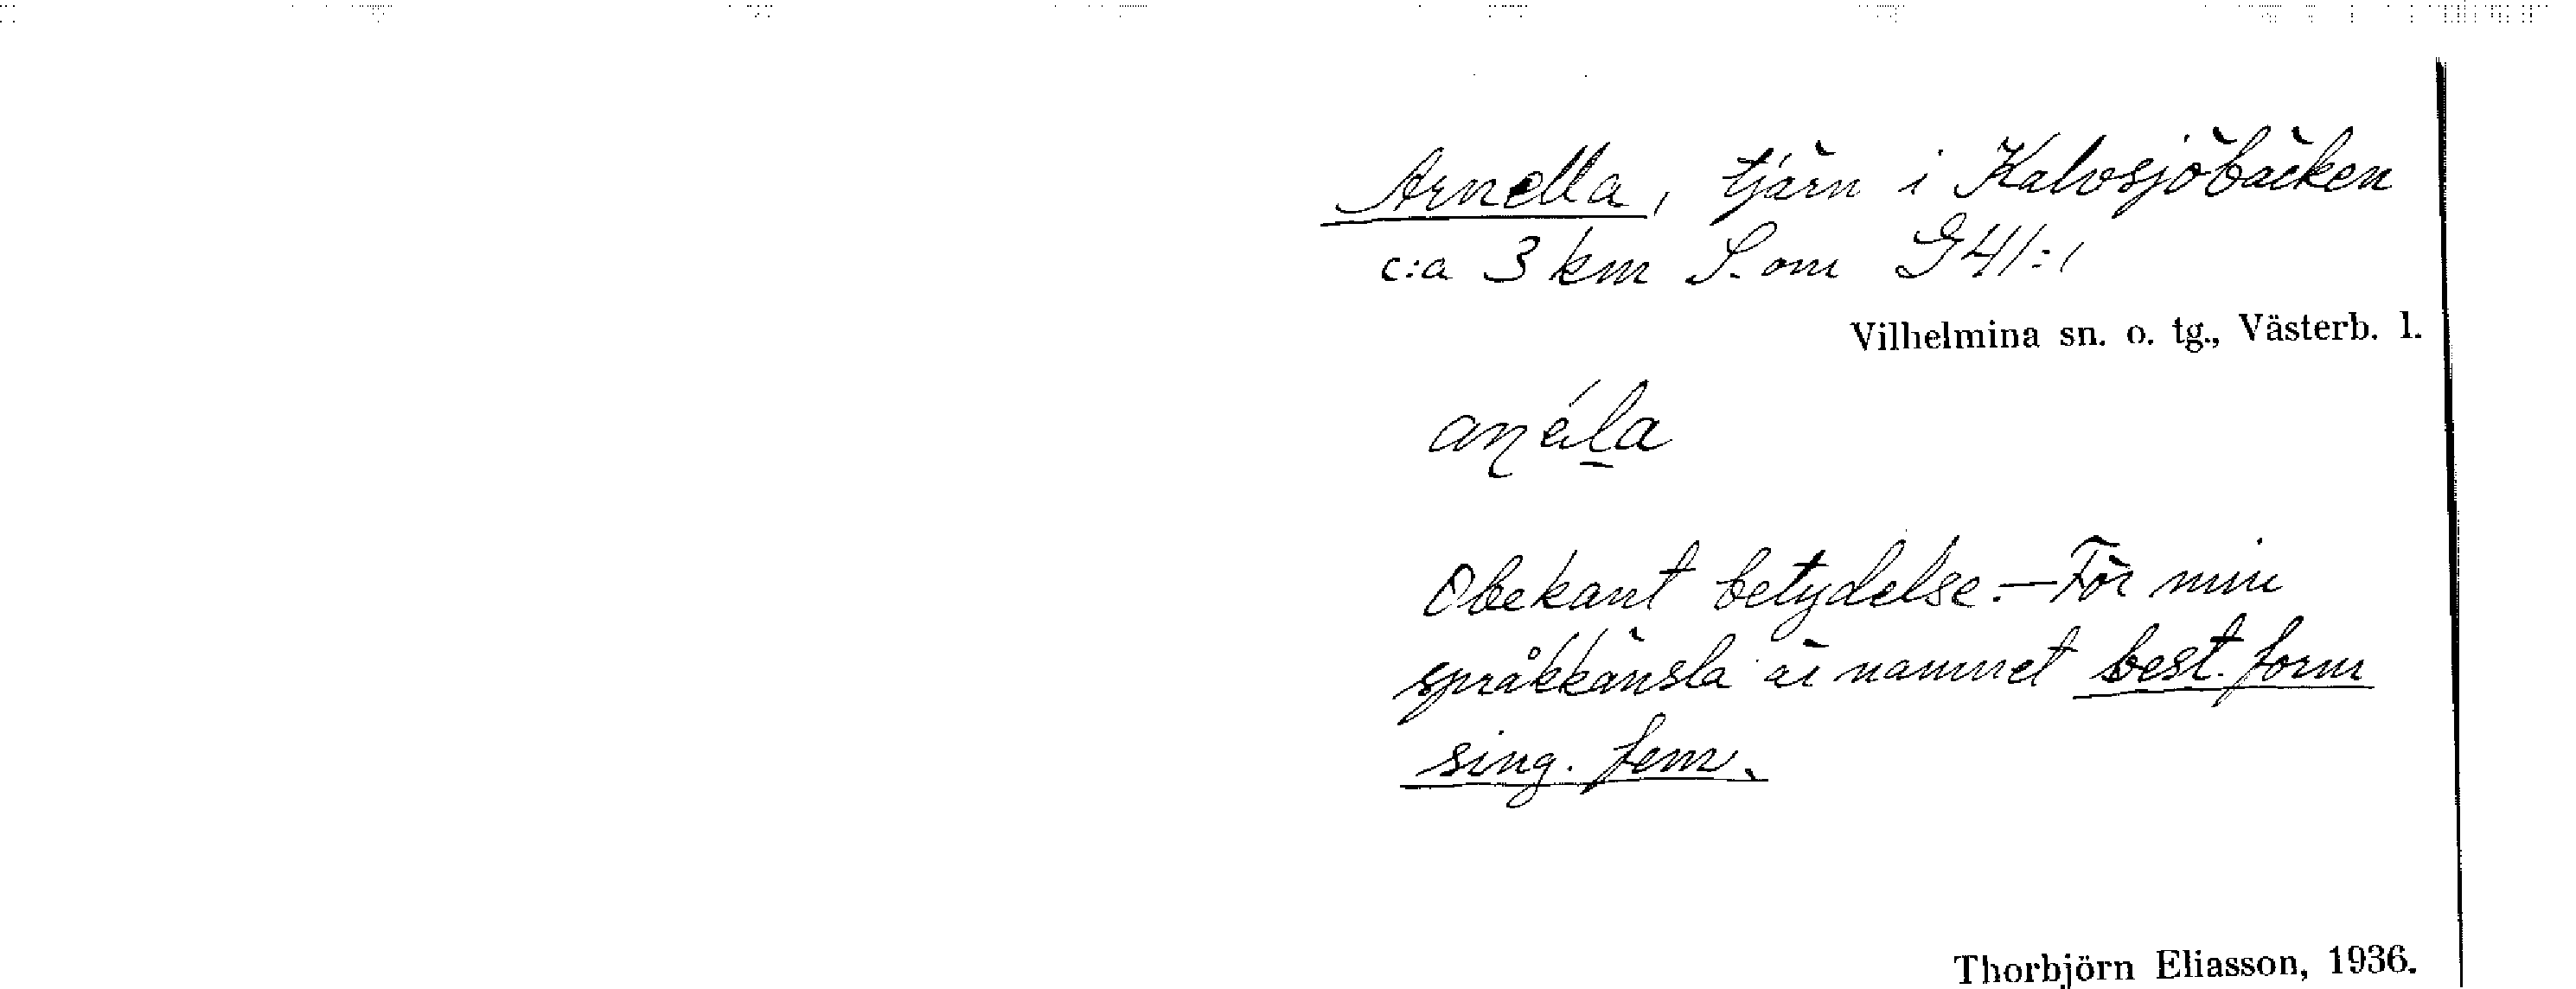 Arnella, tjärn i Kalvsjöbäcken
c:a 3 km S. om G41:1
Vilhelmina sn. o. tg., Västerb. l.
aṇéḻa
Obekant betydelse. — För min
språkkänsla är namnet best. form
sing. fem.
Thorbjörn Eliasson, 1936.